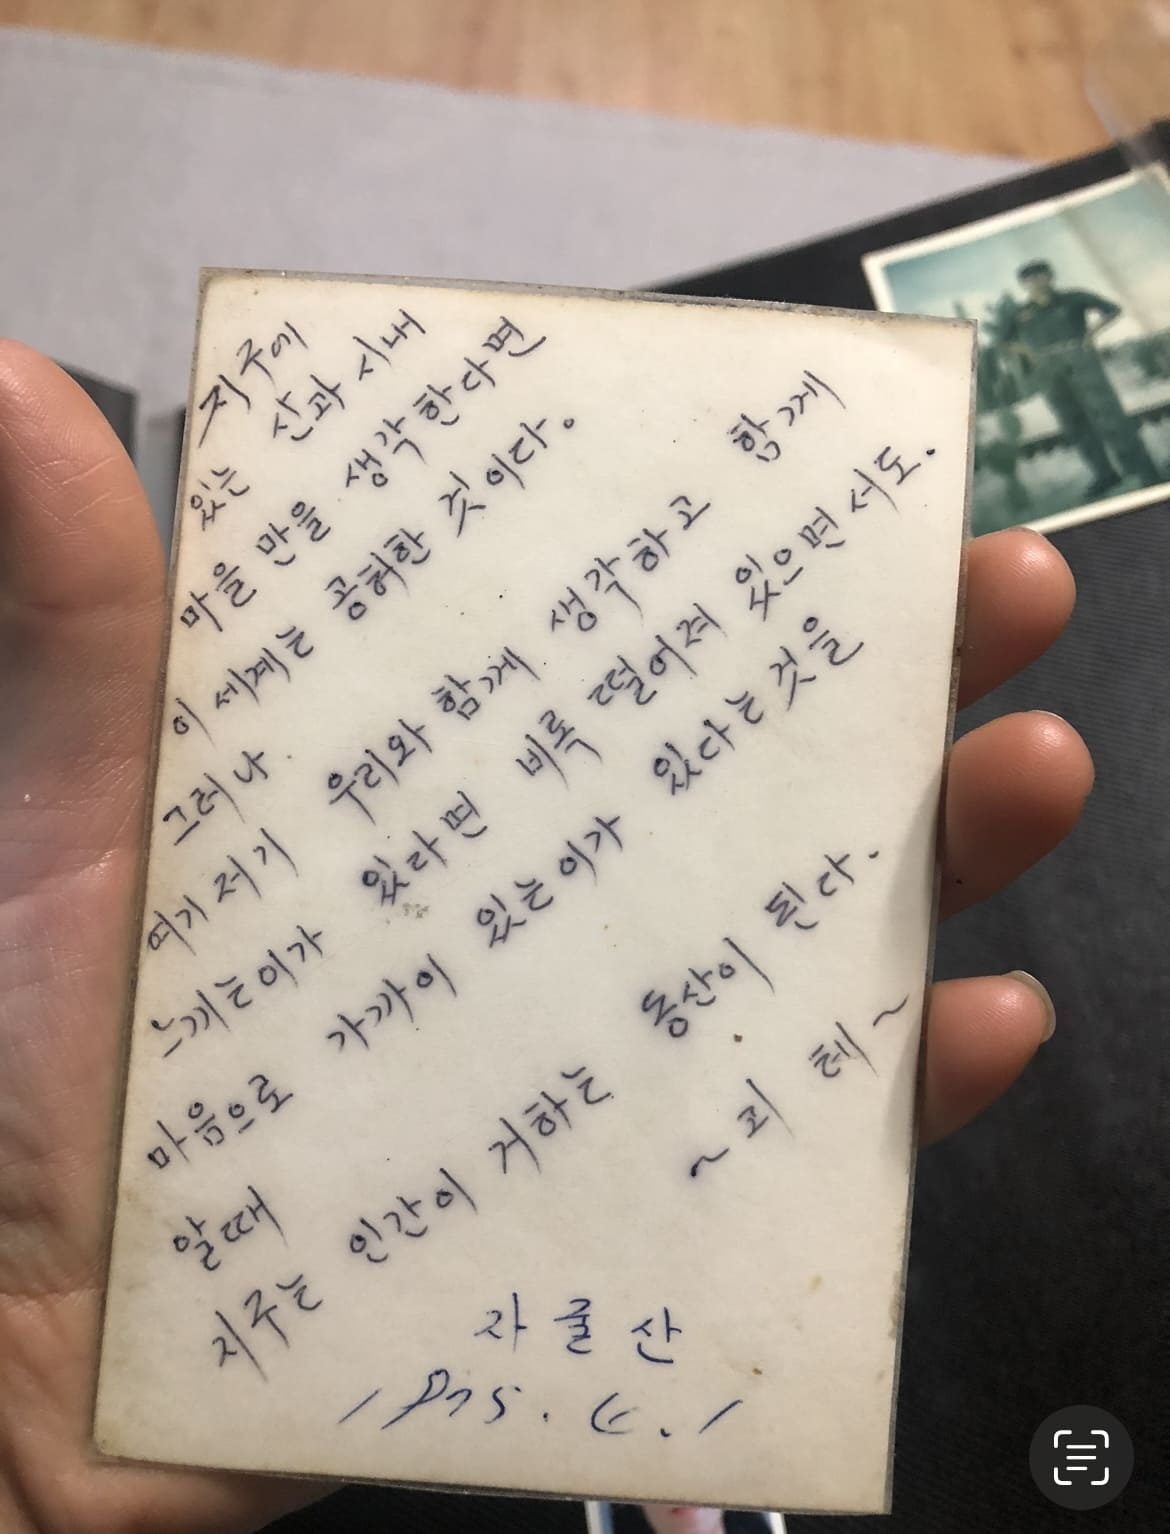 지구에
있는 산과 시내
마을 만을 생각한다면
이 세계는 공허한 것이다.
그러나
여기 저기 우리와 함께 생각하고 함께
느끼는이가 있라면 비록 떨어져 있으면서도.
마음으로 가까이 있는이가 있다는것을
알때
지구는 인간이 거하는 동산이 된다.
~괴 테~
자굴산
1975.6.1